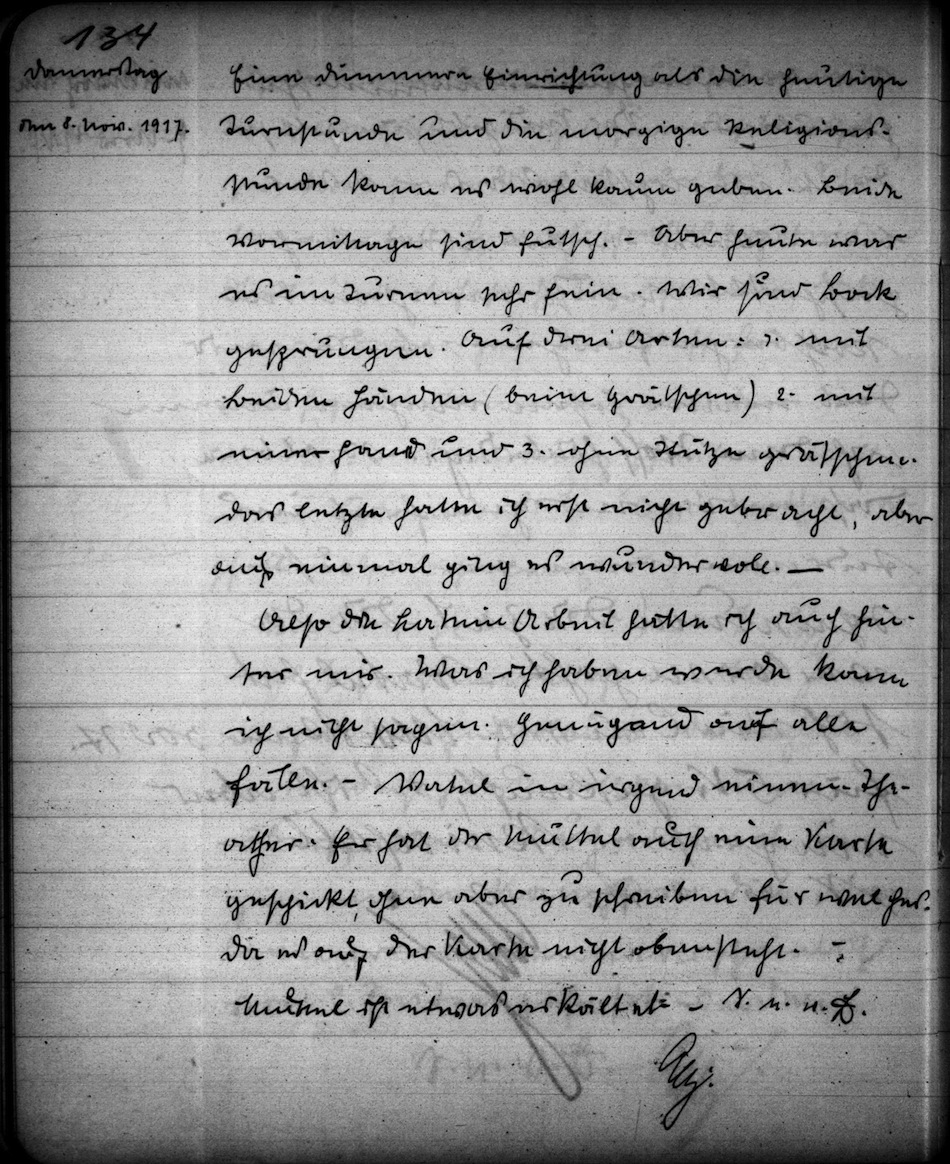 134
Donnerstag
den 8. Nov. 1917.
Eine dümmere Einrichtung als die heutige
Turnstunde und die morgige Religions-
stunde kann es wohl kaum geben. Beide
Vormittage sind futsch. - Aber heute war
es im Turnen sehr fein. Wir sind Bock
gesprungen. Auf drei Arten: 1. mit
beiden Händen (beim Grätschen) 2. mit
einer Hand und 3. ohne Stütze grätschen.
das letzte hatte ich erst nicht gebracht, aber
auf einmal ging es wundervoll. —
Also die Latein Arbeit hätte ich auch hin-
ter mir. Was ich haben werde kann
ich nicht sagen. Genügend auf alle
Fälle. - Vatel in irgend einem The-
ather. Er hat der Muttel auch eine Karte
geschickt, ohne aber zu schreiben für welches.
da es auf der Karte nicht obensteht. -
Muttel ist etwas erkältet - V. u. u.